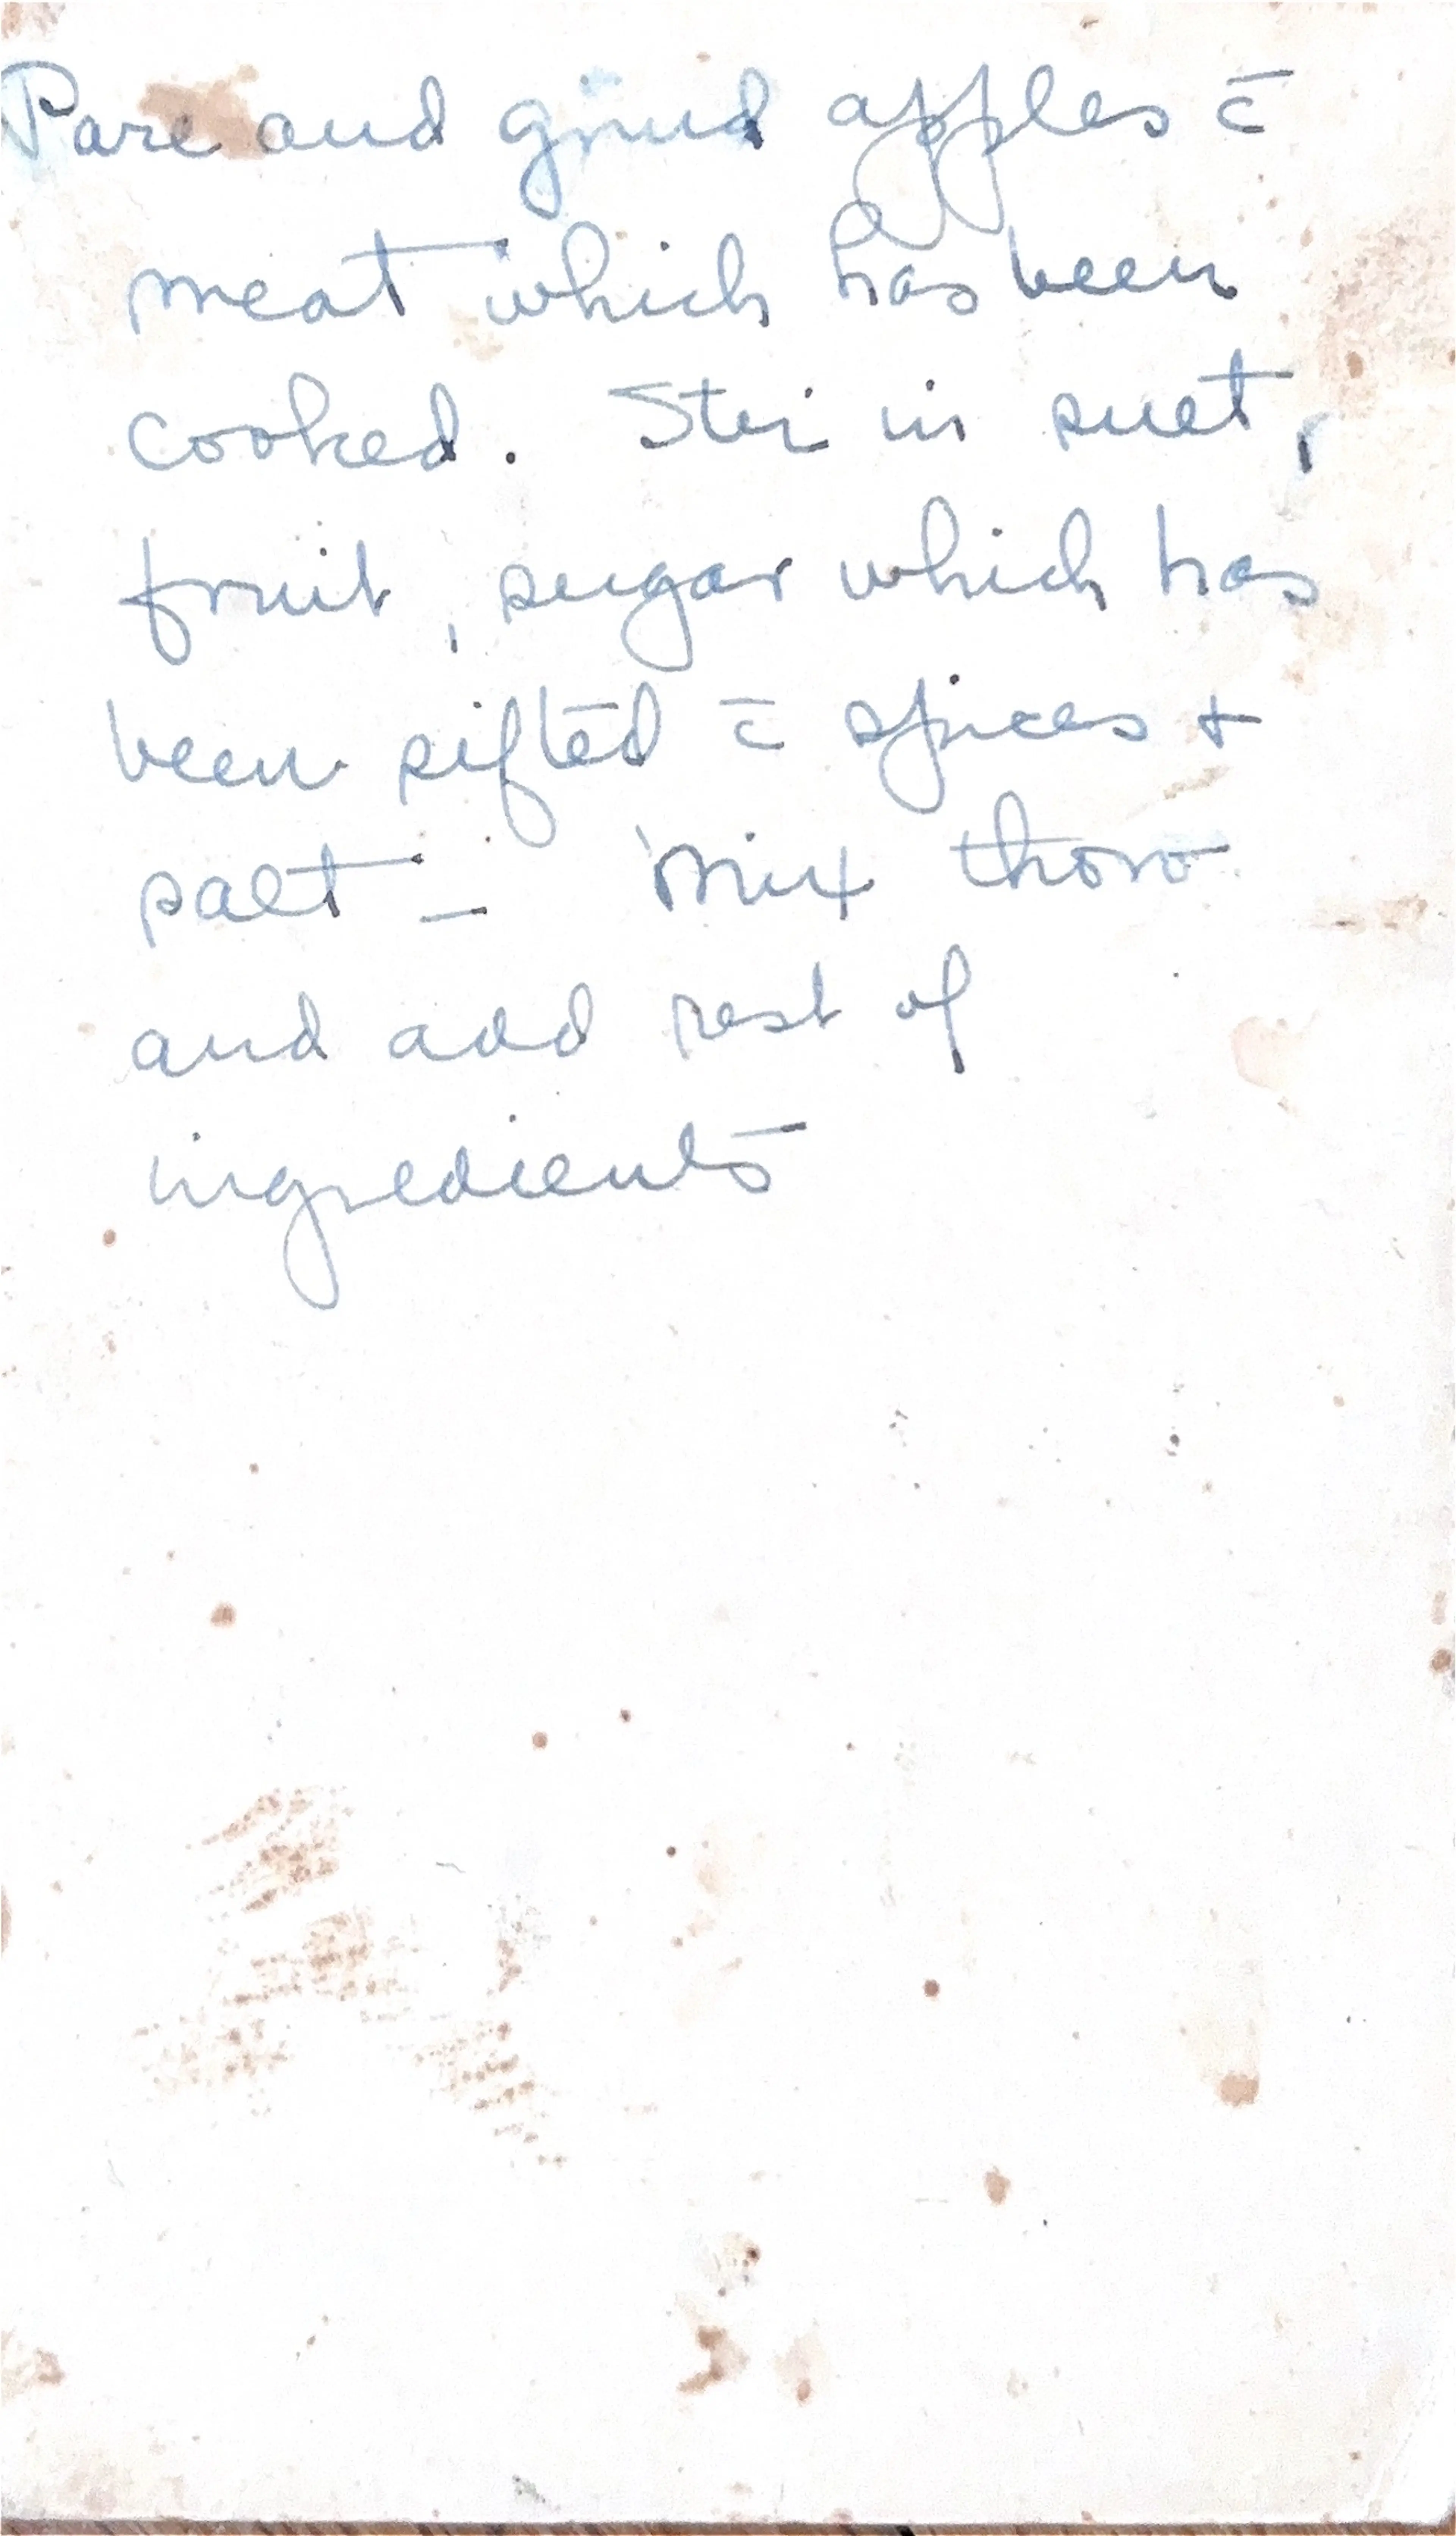 Pare and grind apples c̄
meat which has been
cooked. Stir in suet,
fruit, sugar which has
been sifted c̄ spices +
salt – Mix thoro
and add rest of
ingredients